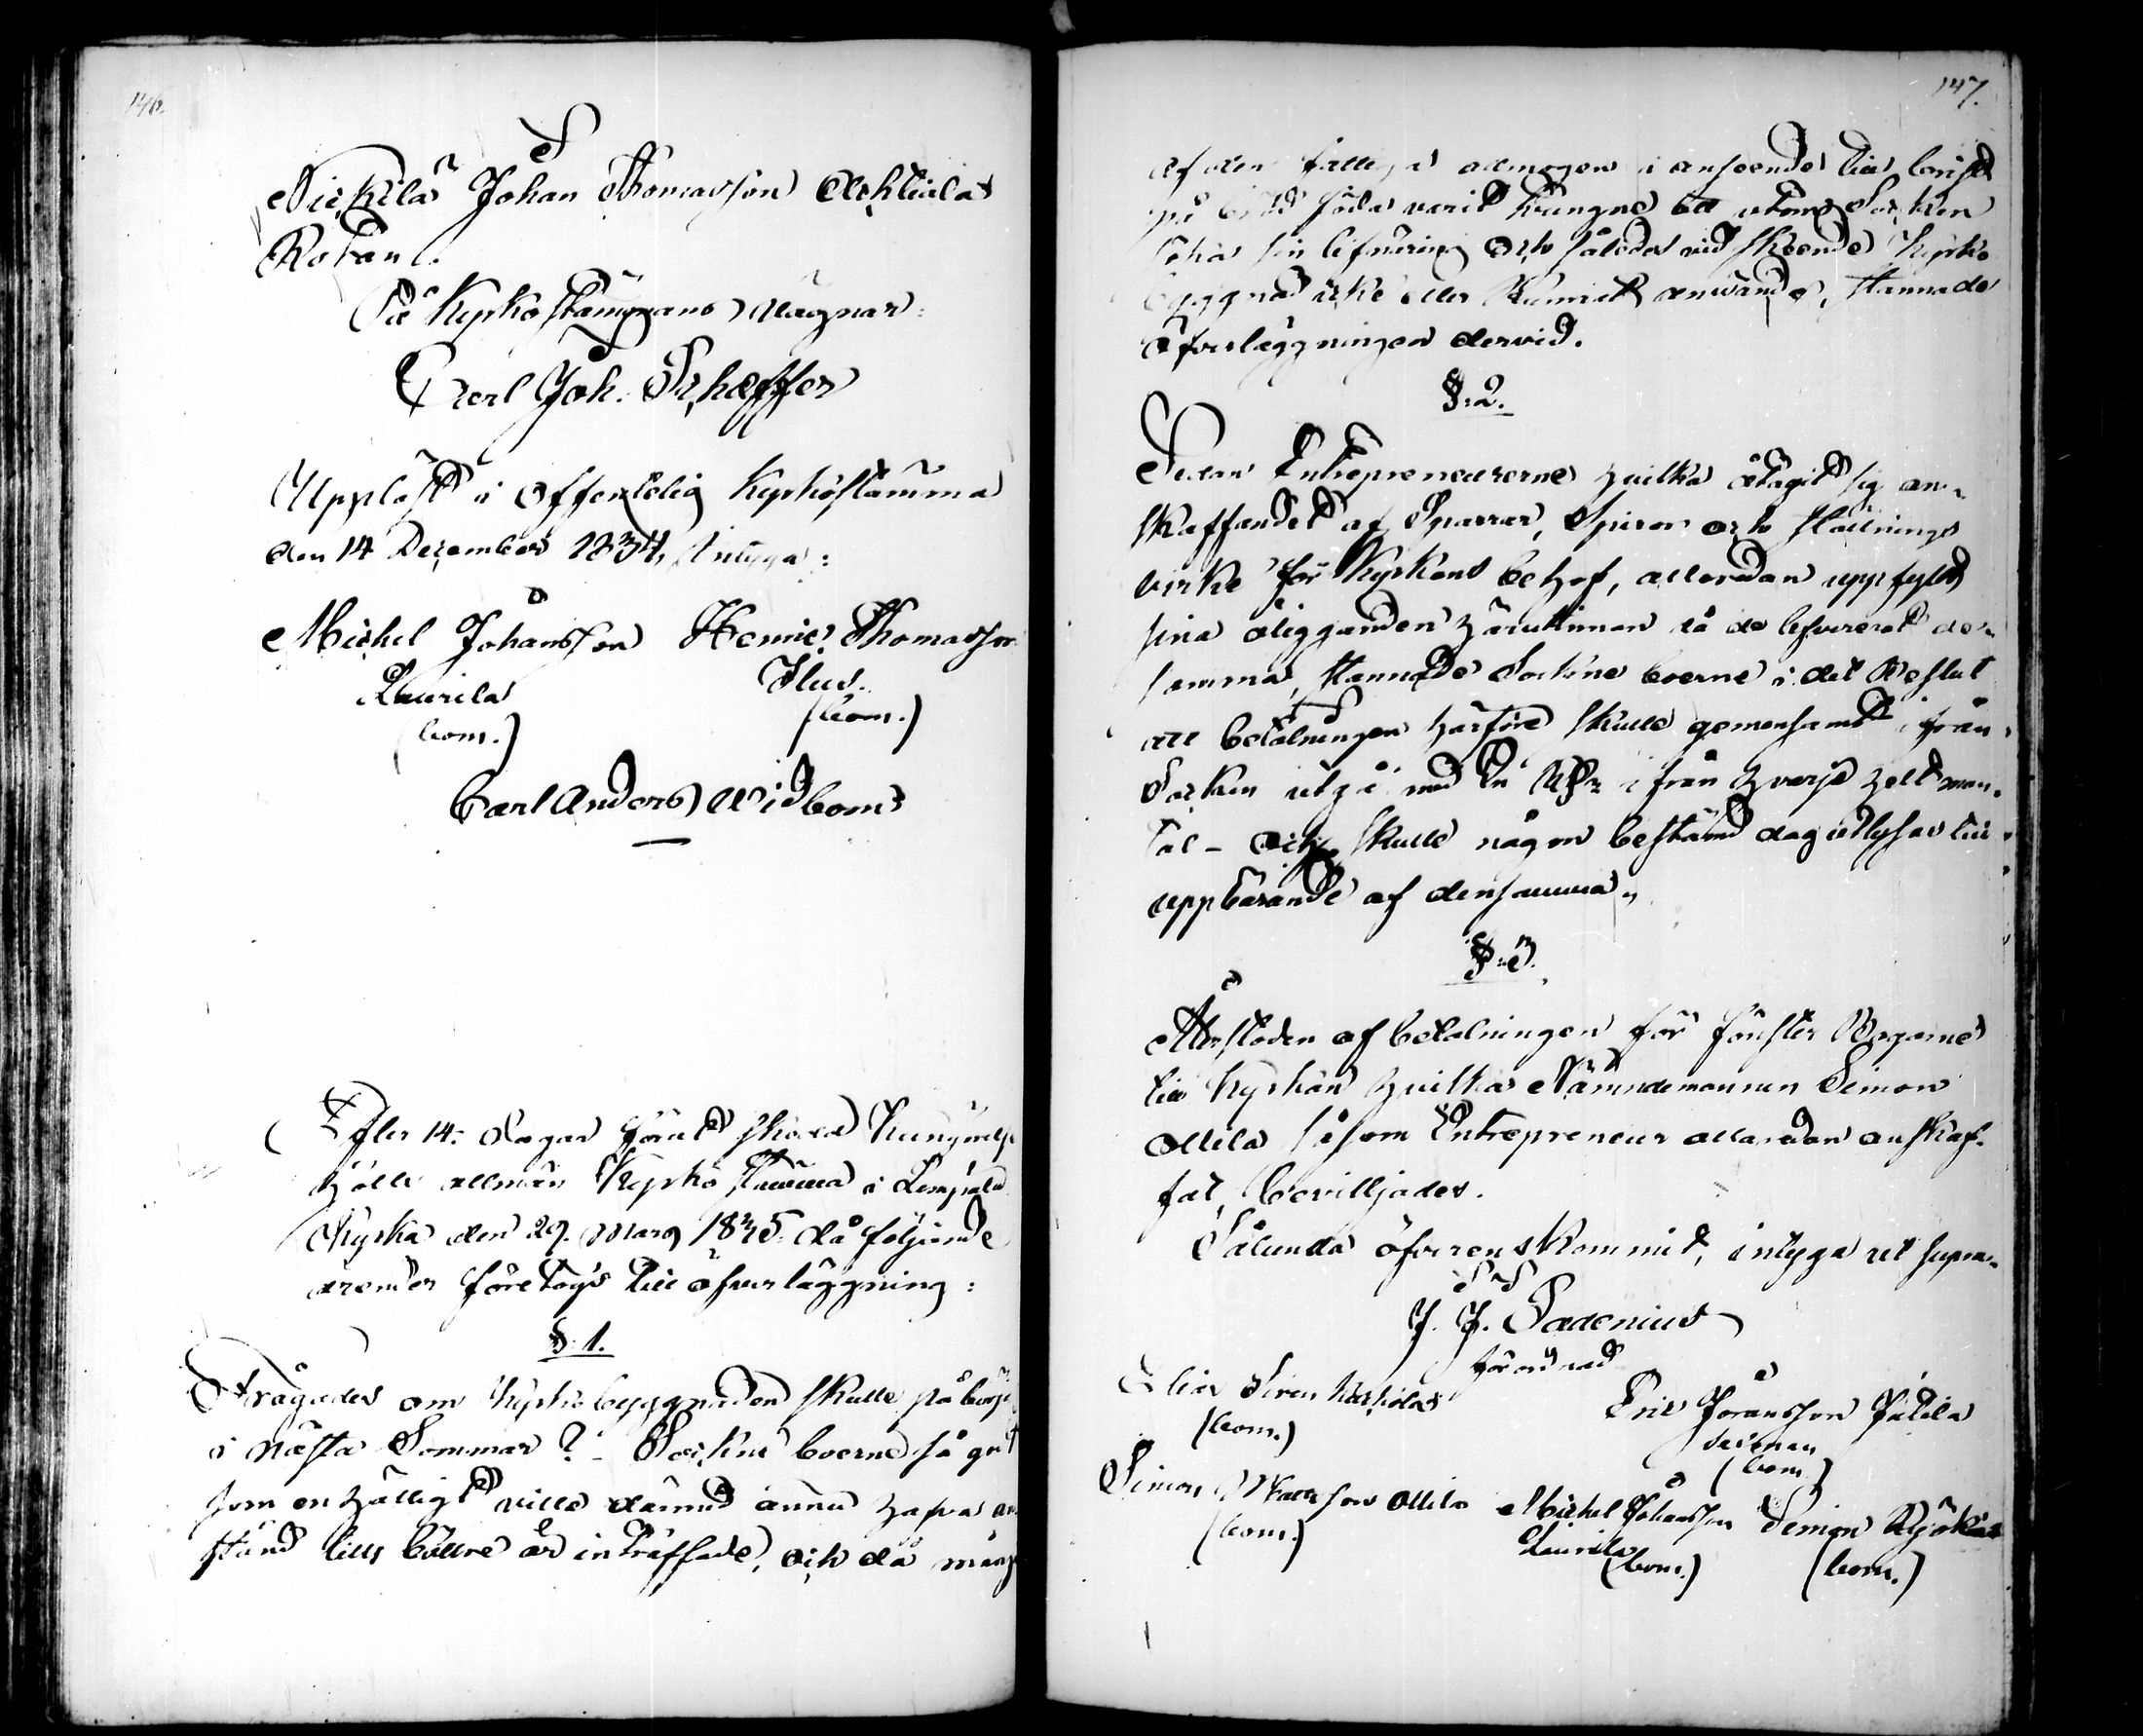 146.
Nickilä Johan Thomasson Achtiala
Rotan.
På Kyrkostämmans vägnar:
Carl Joh. Schæffer
Uppläst i offentelig Kyrkostämma
den 14 December 1834, intyga:
Michel Johansson Henric Thomasson
Laurila Ilus.
(bom.) (bom.)
Carl Anders Widbom
Efter 14. dagar förut skedd kungörelse
hölls allmän Kyrko stämma i Lempäälä
Kyrka den 29. Mars 1835 då följande
ärender företogs till öfverläggning:
§. 1.
Frågades om Kyrkobyggnaden skulle påbörjas
i nästa Sommar? - Sockne boerne så godt
som enhälligt ville därmed ännu hafva an-
stånd tills bättre år inträffade, och då många
147.
af den fattiga allmogen i anseende till brist
på bröd föda varit tvungne att utom Socken
söka sin lifnäring och således vid skeende Kyrko
byggnad icke eller kunnat användas, stannade
öfverläggningen dervid.
§. 2.
Sedan Entrepreneurerne hvilka åtagit sig an-
skaffandet af Sparrar, Spiror och ställnings
virke för Kyrkans behof, alleredan uppfyllt
sina åligganden härutinnan då de lefvererat de-
samma, stannade Sockne boerne i det Beslut
att betalningen härföre skulle gemensamt ifrån
Socken utgå med En Rbr ifrån hvarje helt man-
tal - och skulle någon bestämd dag utlysas till
uppbärande af densamma.
§. 3.
Återstoden af betalningen för fönster Bogarne
till Kyrkan hvilka Nämndemannen Simon
Ollila såsom Entrepreneur allaredan anskaf-
fat, bevilljades.
Sålunda öfverenskommit, intyga ut supra.
J. J. Pædenius
förordnad
Elias Siren
(bom.)
Eric Jöransson Jutila
(bom.)
Simon Mattsson Ollila Michel Johansson Simon
(bom.) Laurila (bom.) (bom.)